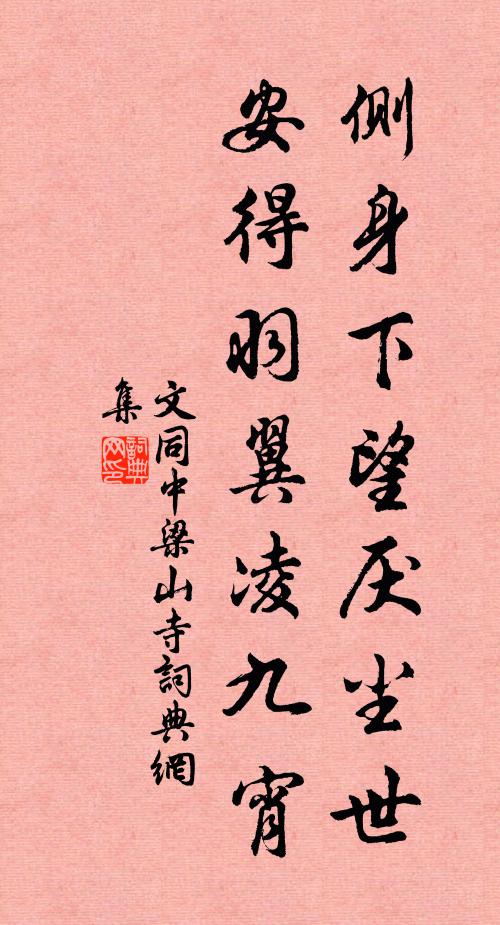 侧身下望厌尘世
安得羽翼凌九霄
文同中梁山寺詞典網
集
詞典網印